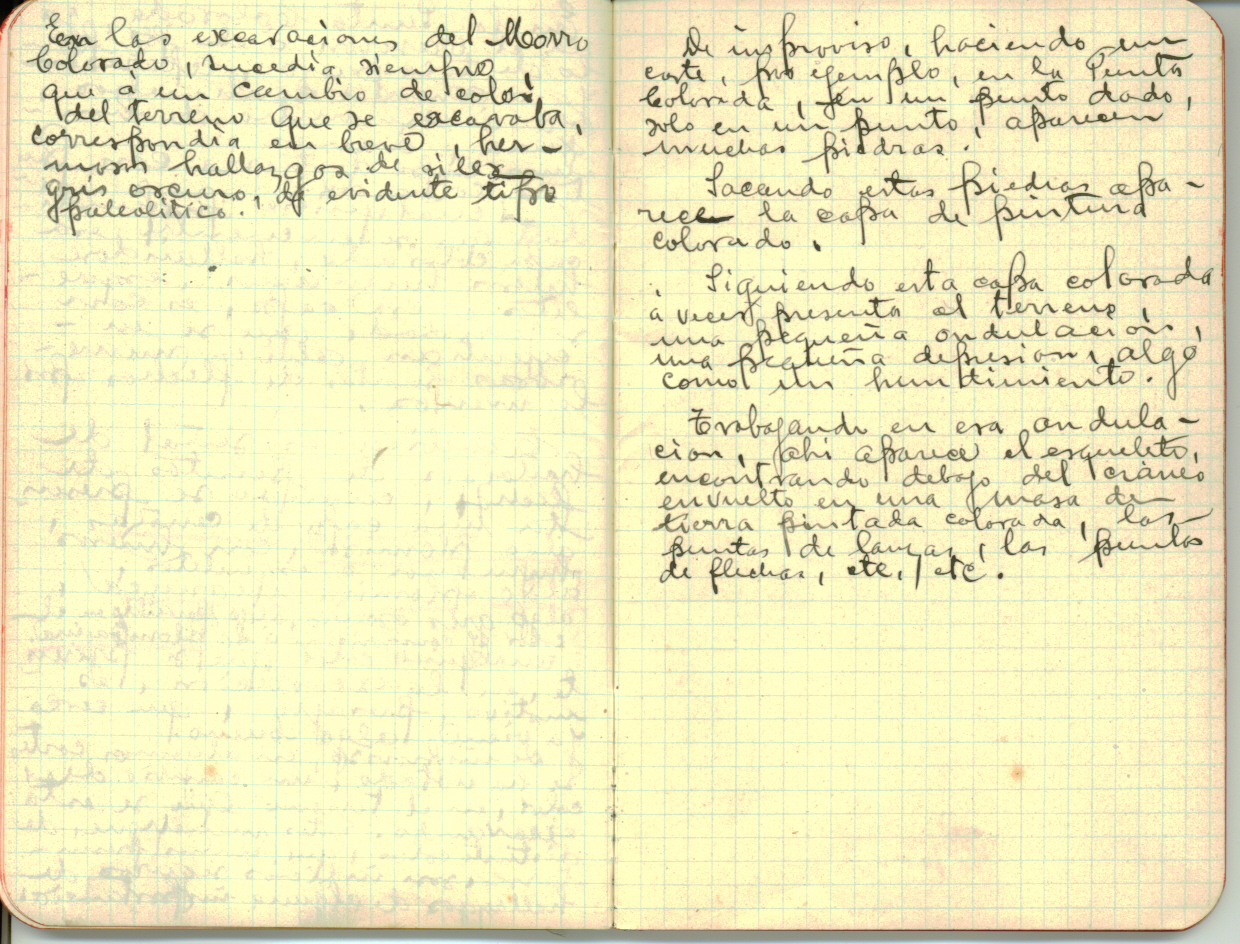 En las excavaciones del Morro
Colorado, sucedia siempre,
que á un cambio de color,
del terreno que se excavaba,
correspondia en breve, her-
mosos hallazgos de silex
gris oscuro, de evidente tipo
paleolitico.
De improviso, haciendo un
corte, por ejemplo, en la Punta
Colorada, en un punto dado,
solo en un punto, aparecen
muchas piedras.
Sacando estas piedras apa-
rece la capa de pintura
colorado.
Siguiendo esta capa colorada
a veces presenta el terreno,
una pequeña ondulación,
una pequeña depresion, algo
como un hundimiento.
Trabajando en esa ondula-
cion, ahi aparece el esqueleto,
encontrando debajo del cráneo
envuelto en una masa de
tierra pintada colorada, las
puntas de lanzas, las puntas
de flechas, etc, etc.